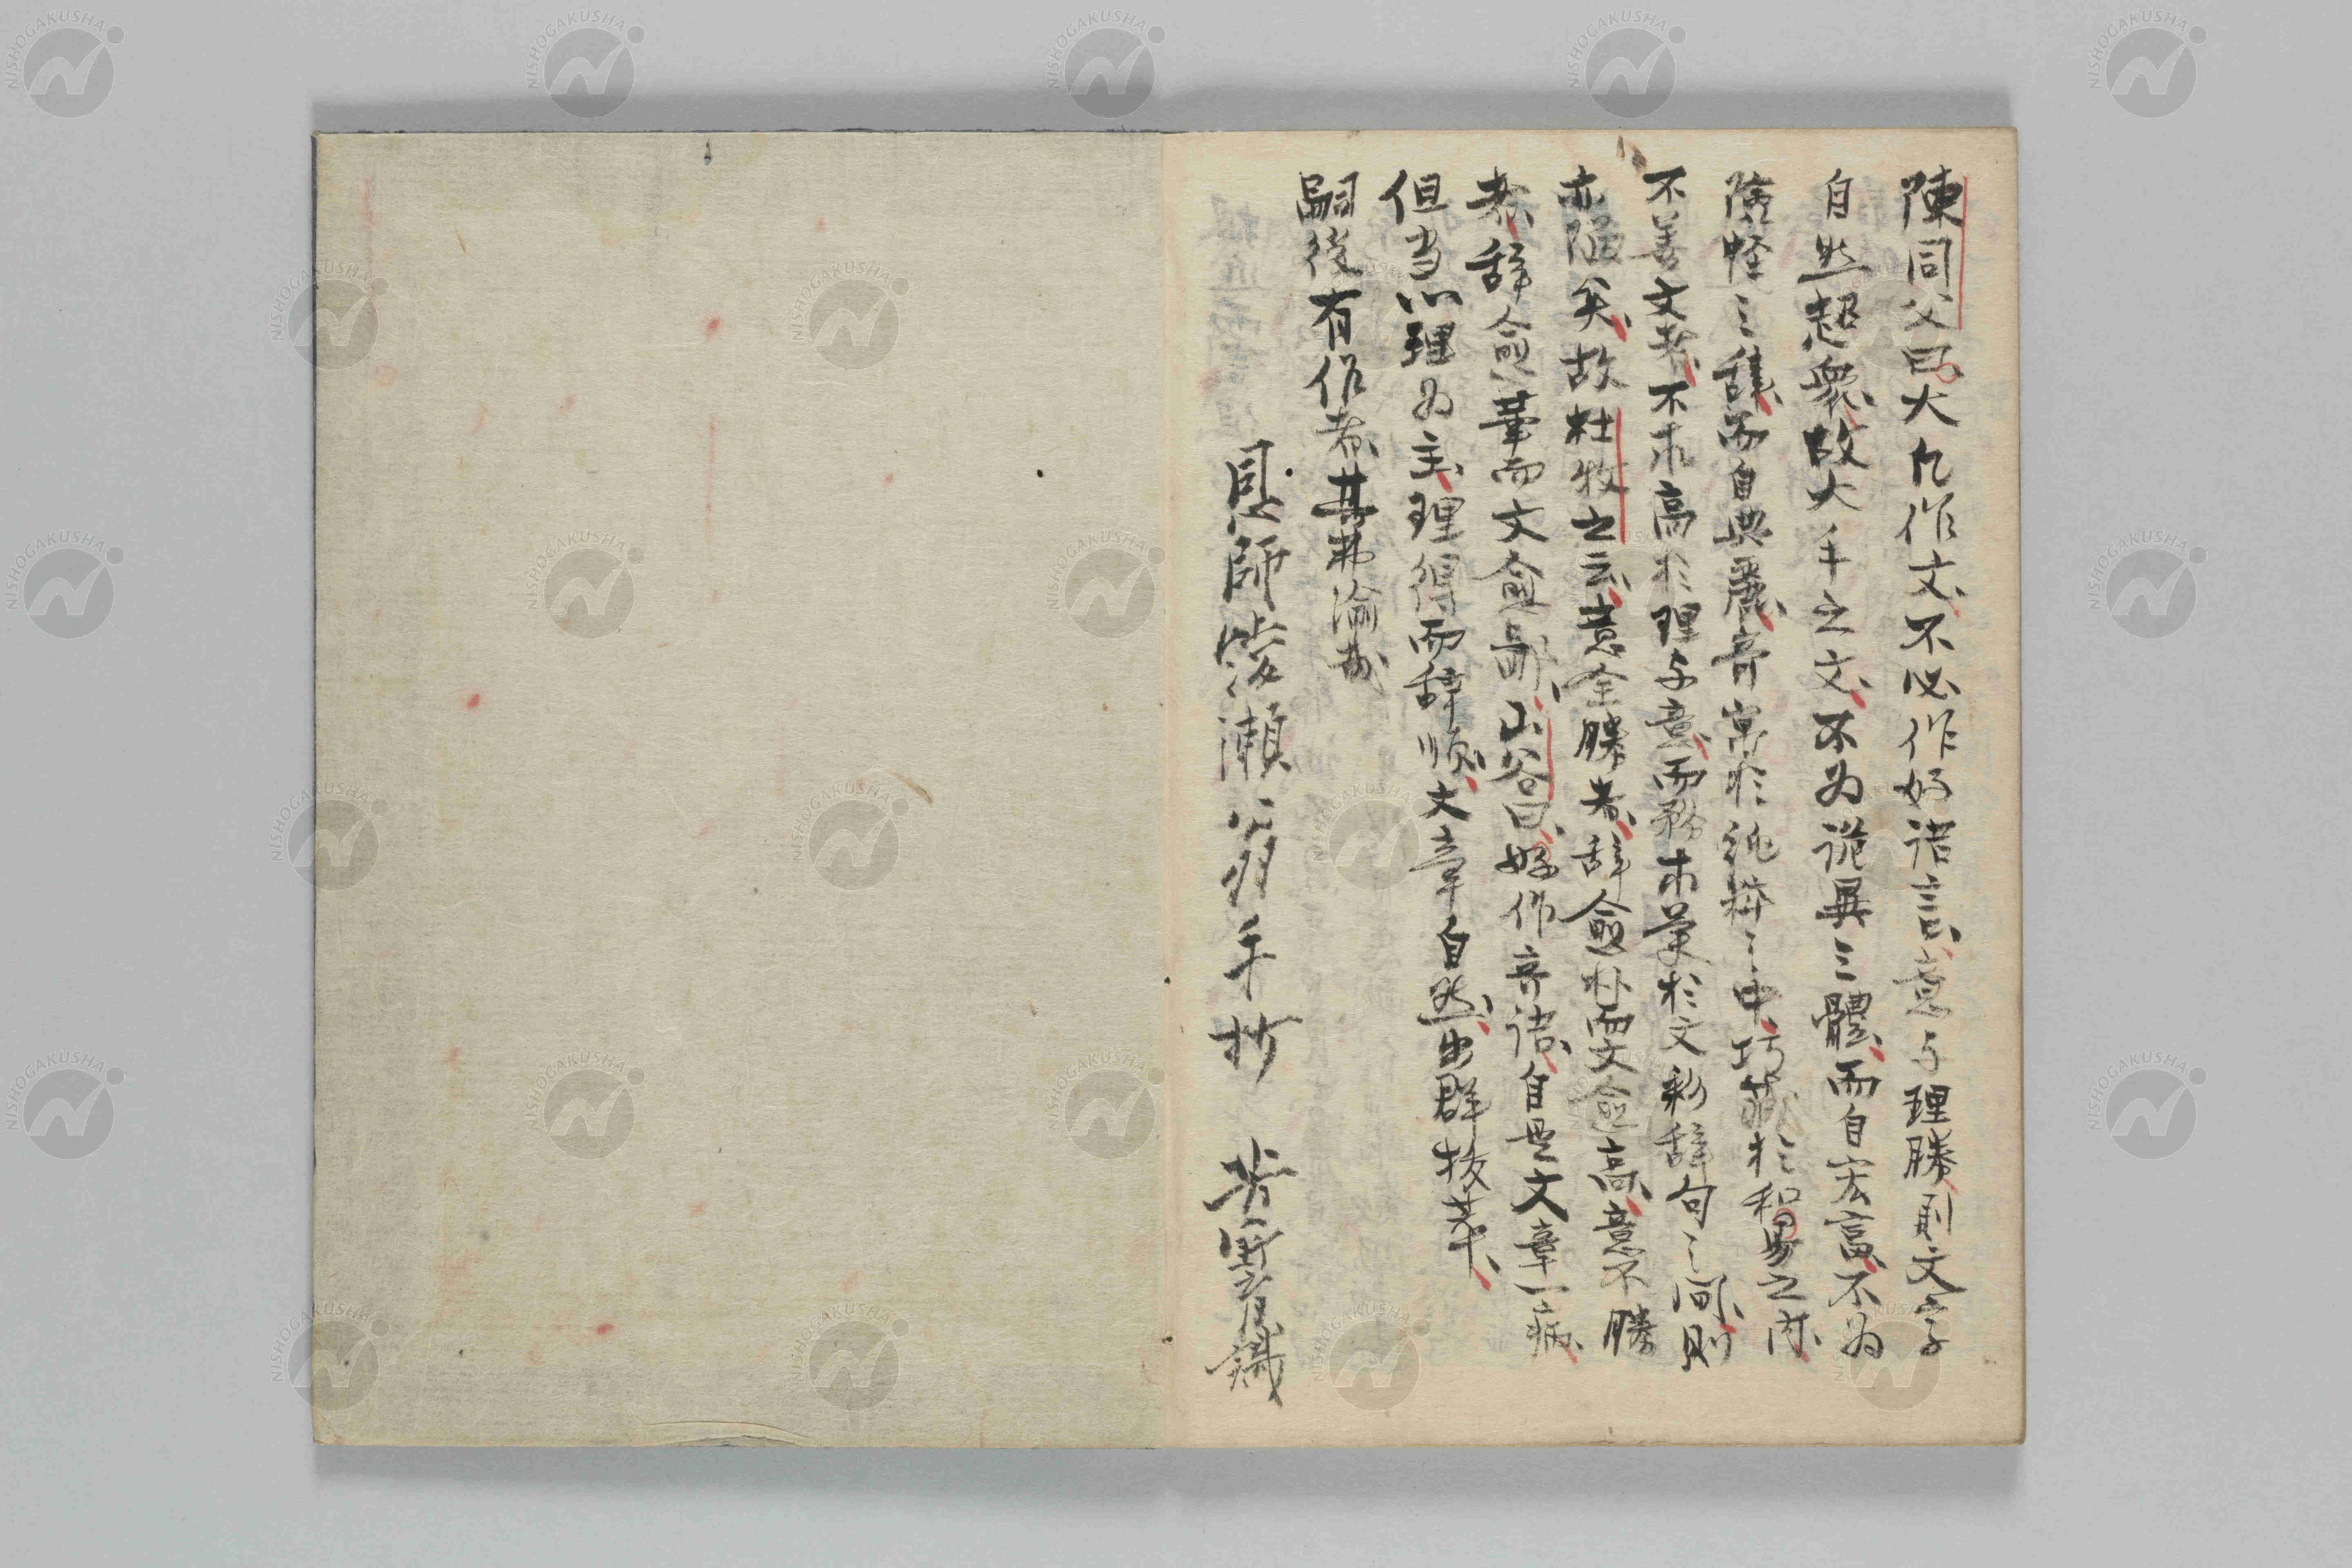 陳同父曰大凡作文不必作好語言意与理勝則文字
自然超衆故大手之文不為詭異之體而自宏富不為
險怪之辞而自典麗奇寓於純粹之中巧藏於和易之内
不善文者不求高於理与意而務求於文彩辞句之間則
亦陋矣故杜牧之云意全勝者辞愈朴而文愈高意不勝
者辞愈華而文愈鄙山谷曰好作奇語自是文章一病
但当以理為主理得而辞順文章自然出群抜萃
嗣後有作者其弗渝哉
師 瀬翁手抄
NISHOGAKUSHA